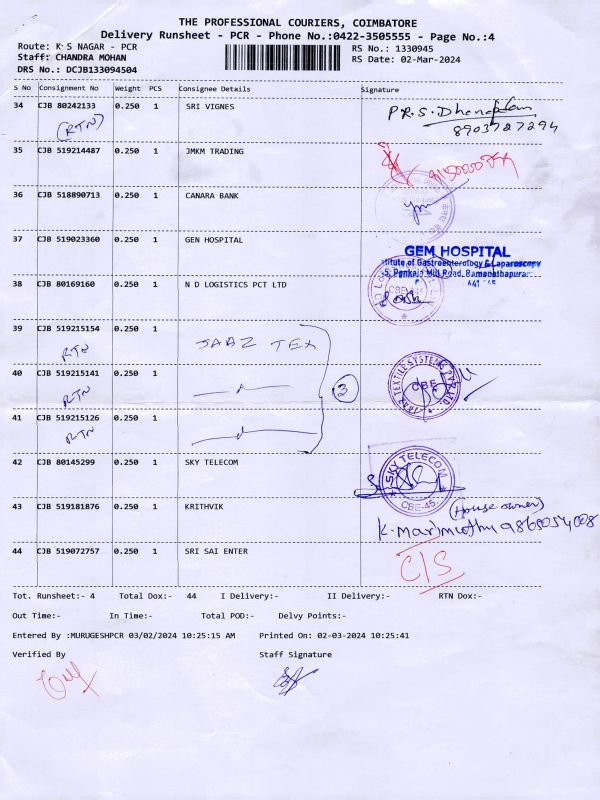 THE PROFESSIONAL COURIERS, COIMBATORE
Delivery Runsheet - PCR - Phone No.:0422-3505555 - Page No.:4
Route: K S NAGAR - PCR
RS No.: 1330945
Staff: CHANDRA MOHAN
RS Date: 02-Mar-2024
DRS No.: DCJB133094504
S No Consignment No Weight PCS Consignee Details Signature
34 CJB 80242133 0.250 1 SRI VIGNES
(RTN)
8903727294
35 CJB 519214487 0.250 1 JMKM TRADING
36 CJB 518890713 0.250 1 CANARA BANK
37 CJB 519023360 0.250 1 GEN HOSPITAL
GEM HOSPITAL
titute of Gastroenterology & Laparoscopy
5, Pankaja Mill Road, Ramanathapura
38 CJB 80169160 0.250 1 N D LOGISTICS PCT LTD
CBE
39 CJB 519215154 0.250 1
RTN
JABZ TEX
40 CJB 519215141 0.250 1
RTN
3
TEXTILE SYSTEMS
CBE
41 CJB 519215126 0.250 1
RTN
42 CJB 80145299 0.250 1 SKY TELECOM
SKY TELECOM
CBE-45.
43 CJB 519181876 0.250 1 KRITHVIK
(House owner)
K. Marimuthu 9865054008
44 CJB 519072757 0.250 1 SRI SAI ENTER
C/S
Tot. Runsheet:- 4 Total Dox:- 44 I Delivery:- II Delivery:- RTN Dox:-
Out Time:- In Time:- Total POD:- Delvy Points:-
Entered By :MURUGESHPCR 03/02/2024 10:25:15 AM Printed On: 02-03-2024 10:25:41
Verified By Staff Signature